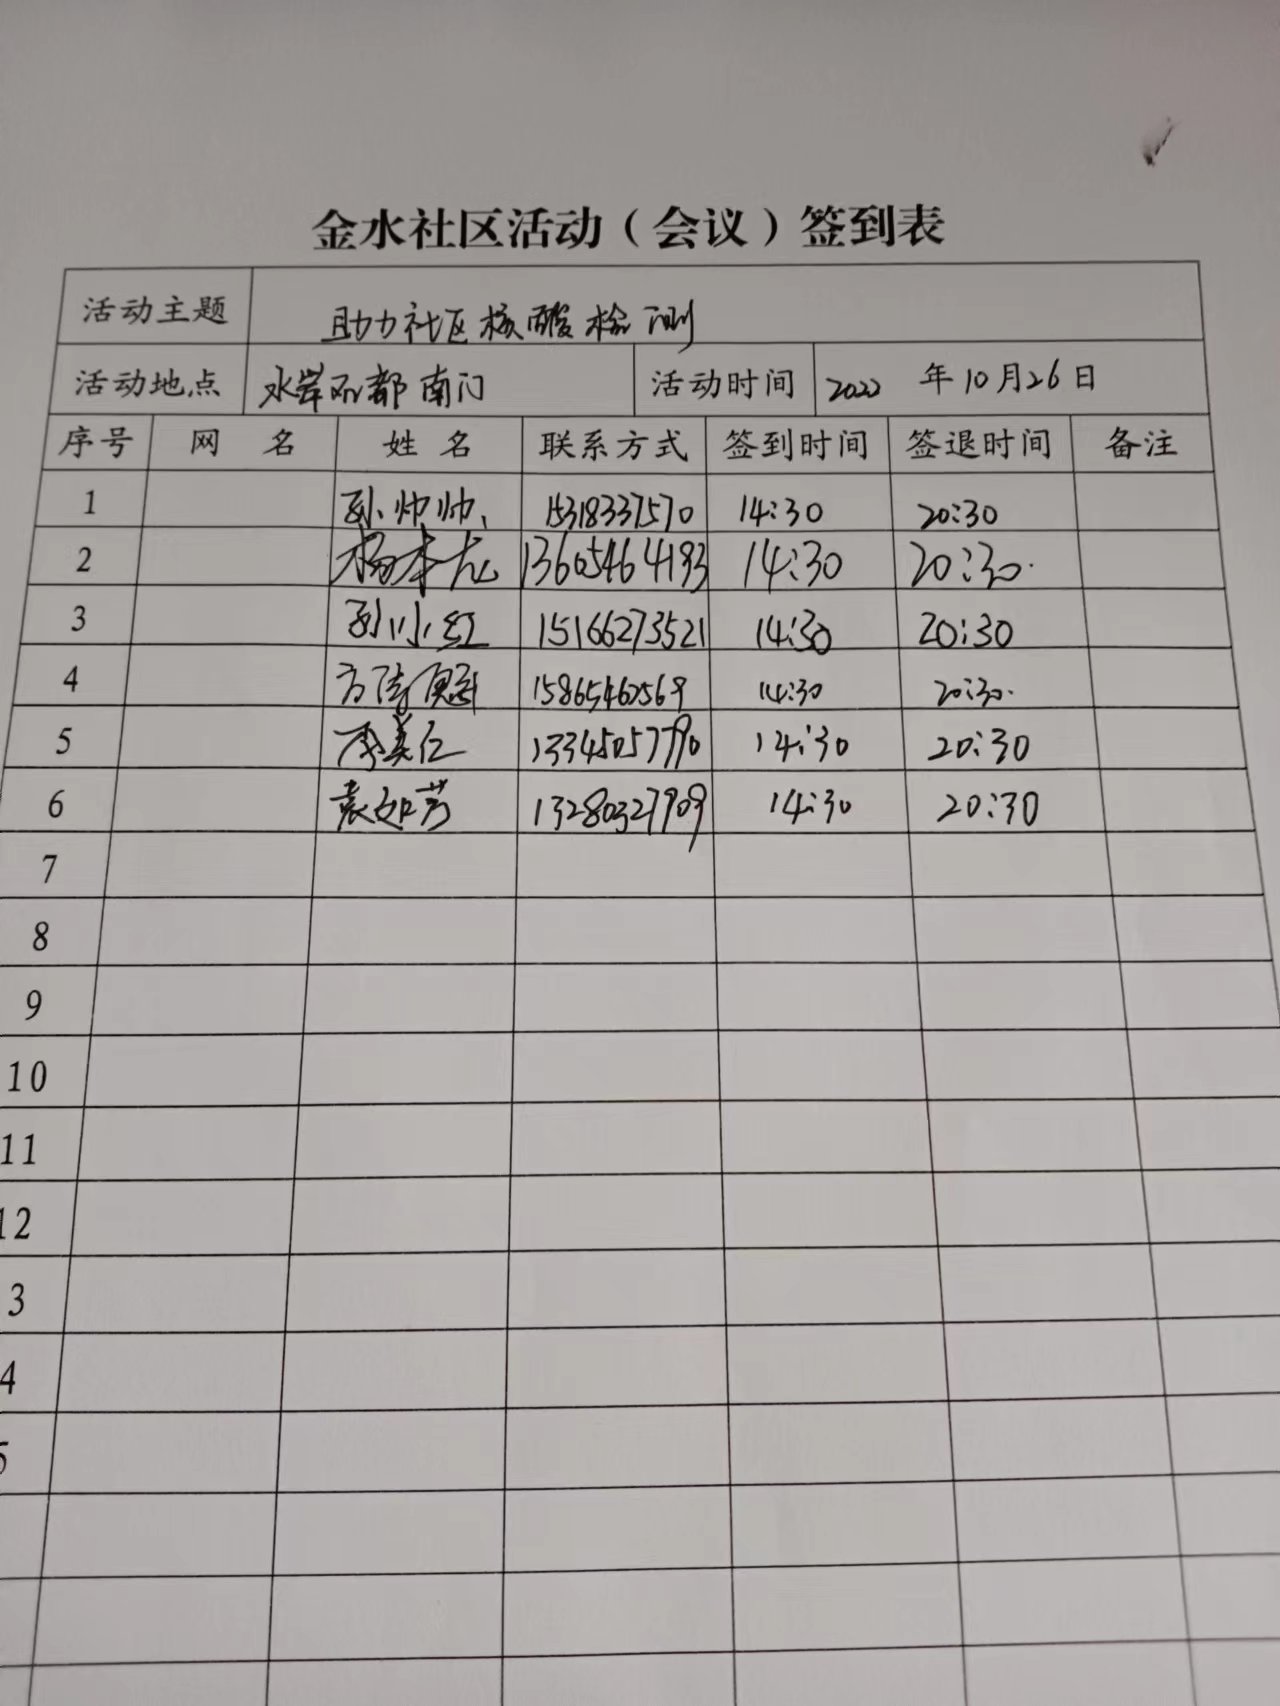 金水社区活动（会议）签到表
活动主题 助力社区核酸检测
活动地点 水岸 都南门 活动时间 2022 年10月26日
序号 网 名 姓 名 联系方式 签到时间 签退时间 备注
1 孙帅帅 15318337570 14:30 20:30
2 杨本龙 13605464193 14:30 20:30
3 孙小红 15166273521 14:30 20:30
4 14:30 20:30
5 李美仁 14:30 20:30
6 袁如芳 13280327909 14:30 20:30
7
8
9
10
11
12
3
4
5